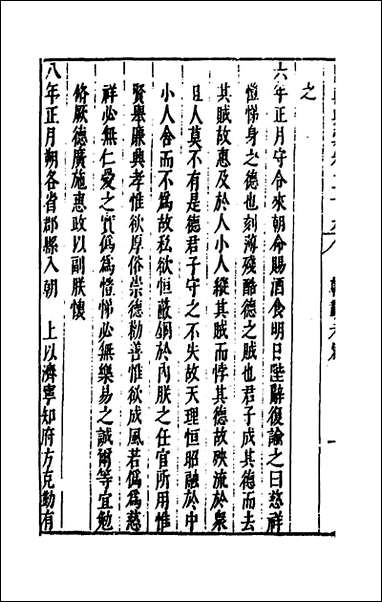 之
六年正月守令來朝命賜酒食明日陛辭復諭之曰慈祥
愷悌身之德也刻薄殘酷德之賊也君子成其德而去
其賊故惠及於人小人縱其賊而悖其德故殃流於衆
且人莫不有是德君子守之不失故天理恒昭融於中
小人舍而不為故私欲恒蔽錮於內朕之任官所用惟
賢舉廉興孝惟欲厚俗崇德勸善惟欲成風若偽為慈
祥必無仁愛之實偽為愷悌必無樂易之誠爾等宜勉
脩厥德廣施惠政以副朕懷
八年正月朔各省郡縣入朝　上以濟寧知府方克勤有